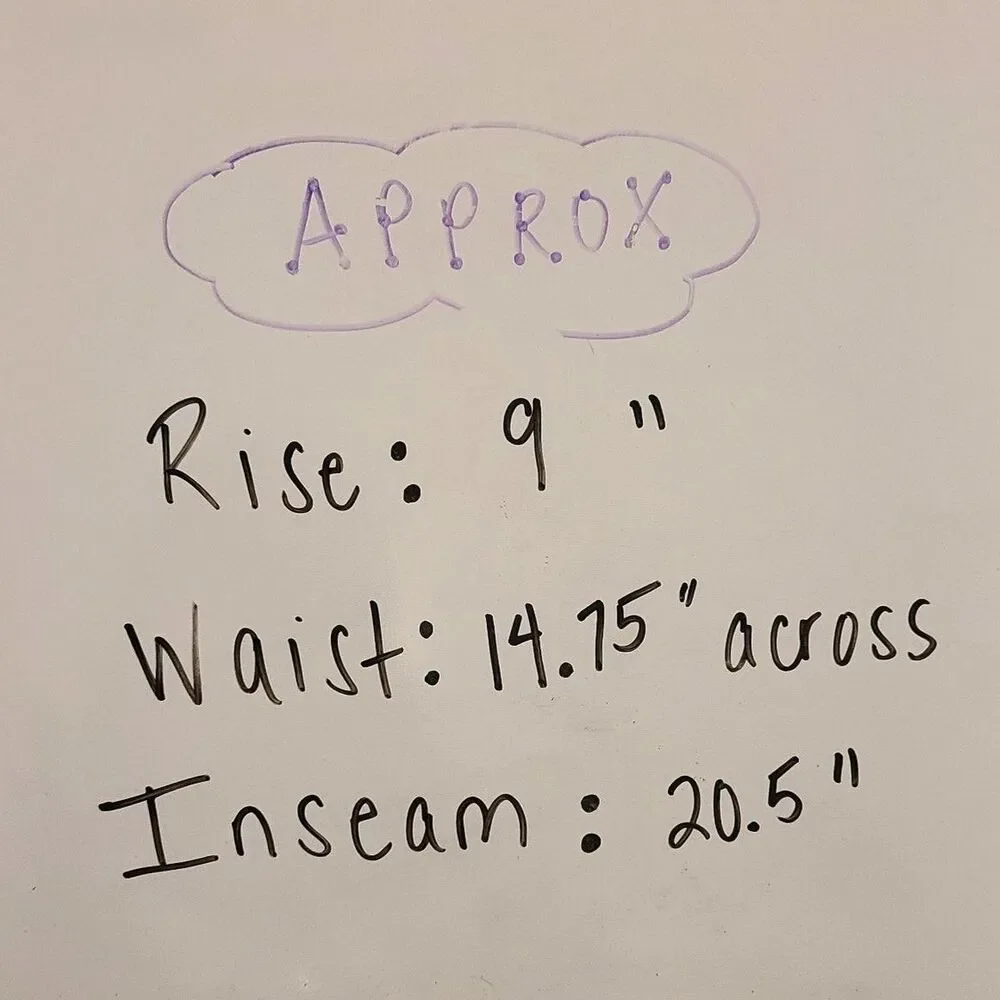 APPROX
Rise: 9 "
Waist: 14.75" across
Inseam : 20.5"